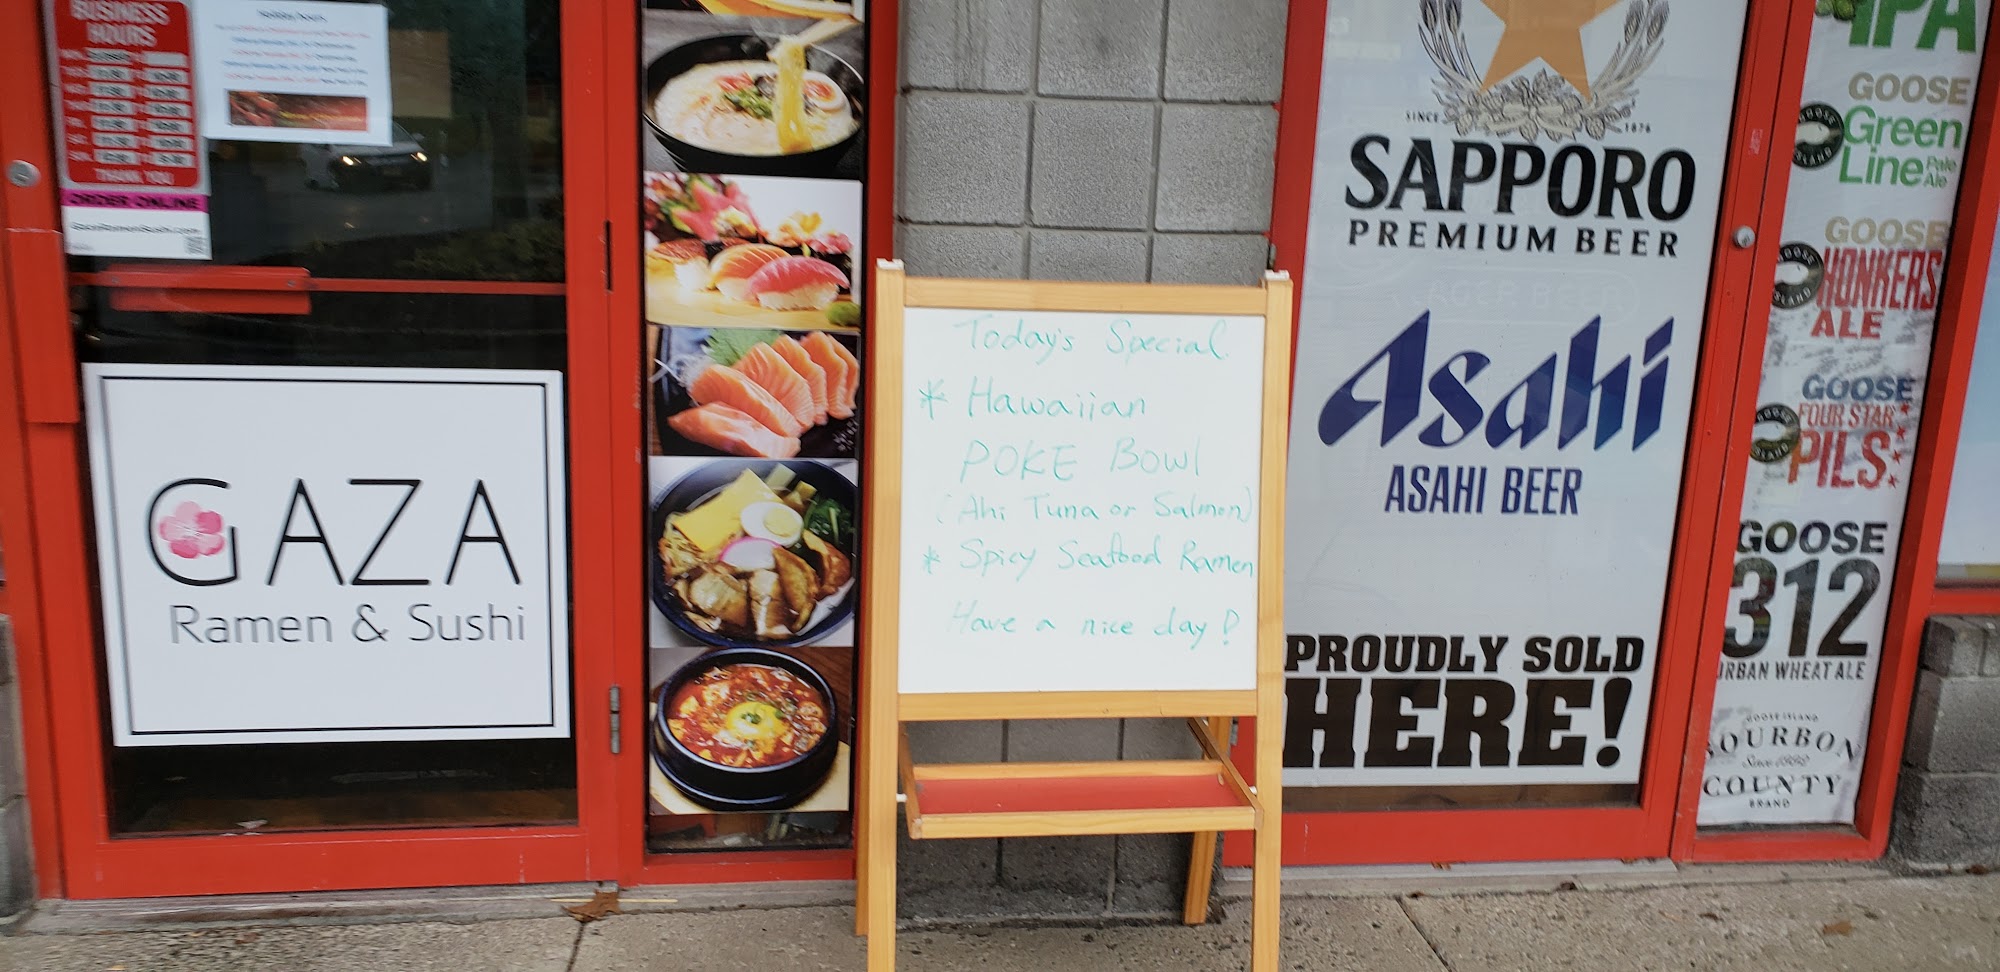 BUSINESS
HOURS
THANK YOU
ORDER ONLINE
GazaRamenSushi.com
Holiday hours
GAZA
Ramen & Sushi
Today's Special
* Hawaiian
POKE Bowl
(Ahi Tuna or Salmon)
* Spicy Seafood Ramen
Have a nice day!
SINCE 1876
SAPPORO
PREMIUM BEER
Asahi
ASAHI BEER
PROUDLY SOLD
HERE!
IPA
GOOSE
Green
Line Pale
Ale
GOOSE ISLAND
GOOSE
HONKERS
ALE
GOOSE ISLAND
GOOSE
FOUR STAR
PILS
GOOSE
312
URBAN WHEAT ALE
GOOSE ISLAND
BOURBON
Since 1992
COUNTY
BRAND